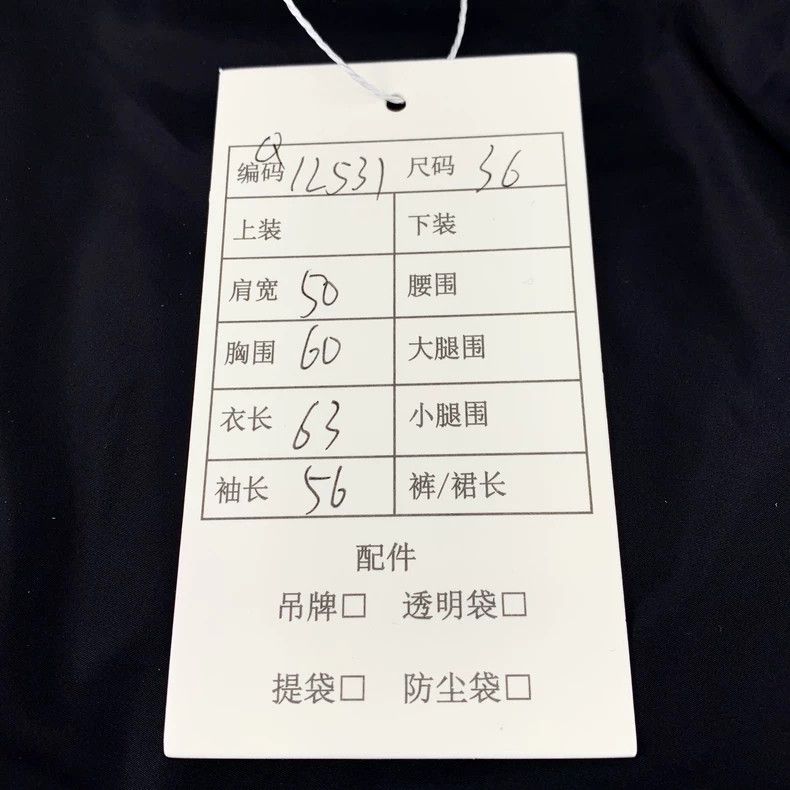 Q
编码 12531 尺码 36
上装 下装
肩宽 50 腰围
胸围 60 大腿围
衣长 63 小腿围
袖长 56 裤/裙长
配件
吊牌□ 透明袋□
提袋□ 防尘袋□